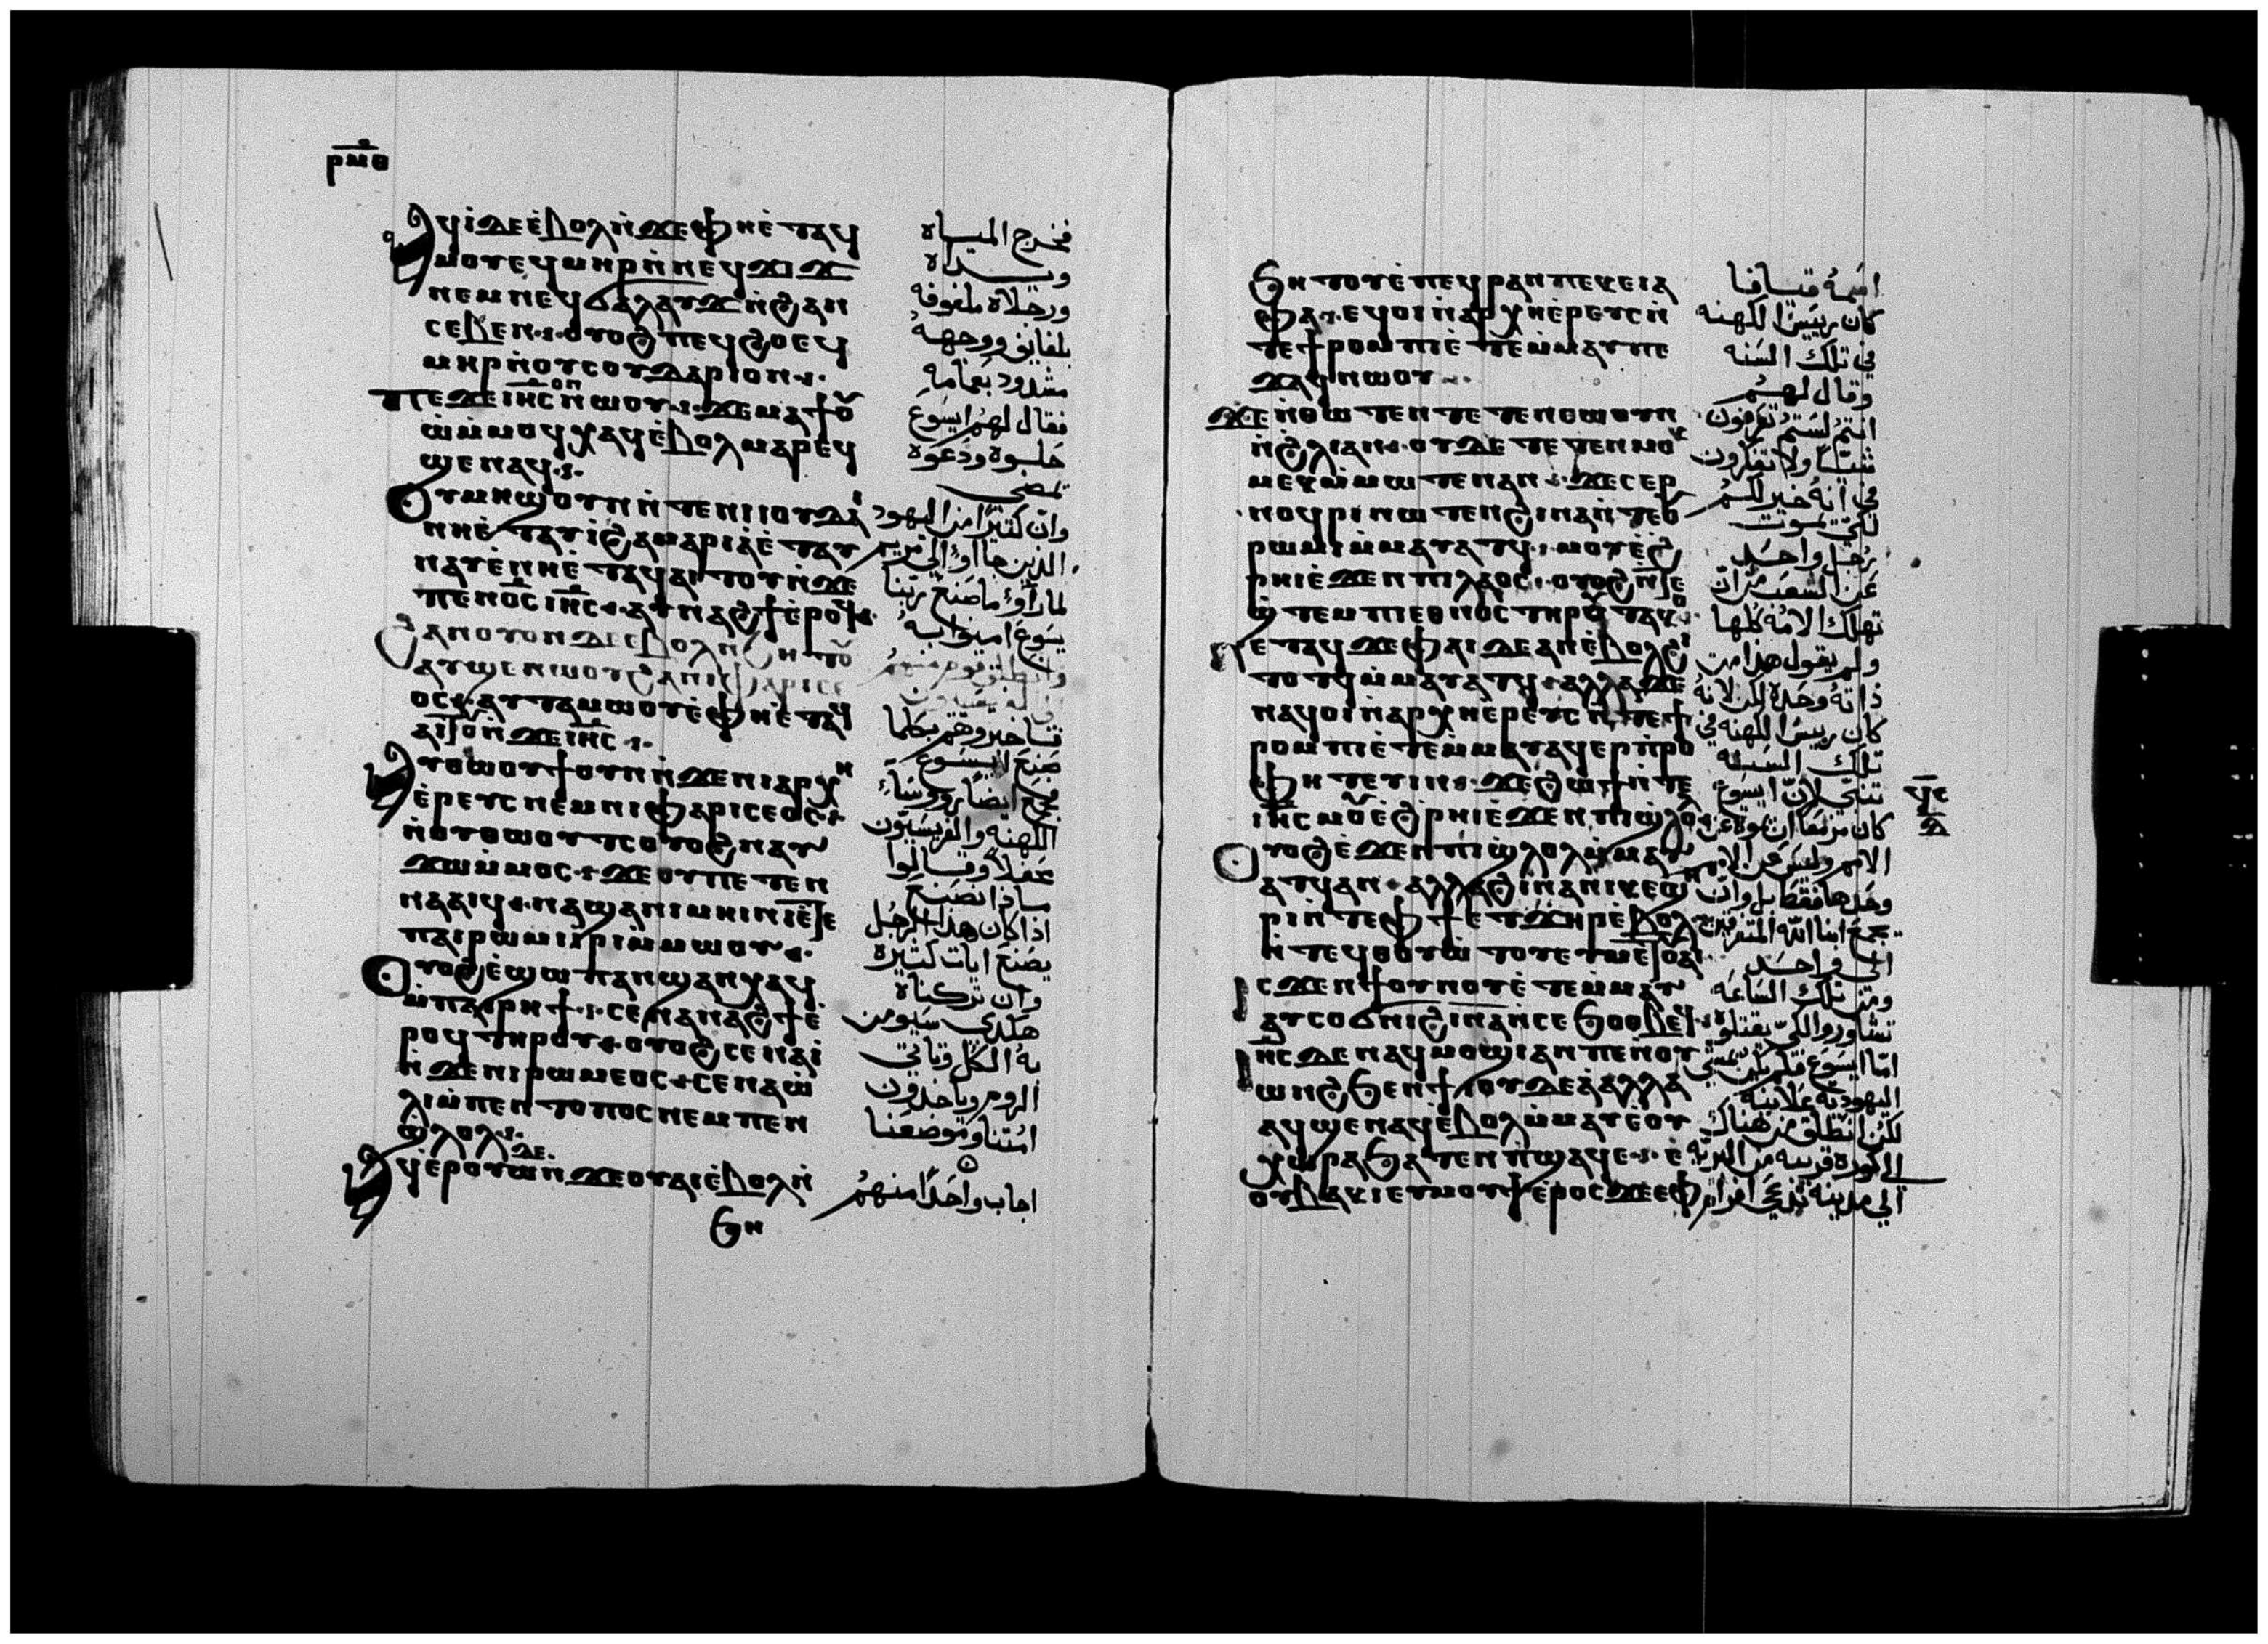 ⲣⲙⲑ
ⲁϥⲓ̀ ⲇⲉ ⲉ̀ⲃⲟⲗ ⲛ̀ϫⲉ ⲫⲏ ⲉ̀ⲧⲁϥ
ⲙⲟⲩ ⲉϥⲙⲏⲣ ⲛ̀ⲛⲉϥϫⲓϫ
ⲛⲉⲙ ⲛⲉϥϭⲁⲗⲁⲩϫ ⲛ̀ϩⲁⲛ
ⲥⲉⲃⲉⲛ ⲟⲩⲟϩ ⲡⲉϥϩⲟ ⲉϥ
ⲙⲏⲣ ⲛ̀ⲟⲩⲥⲟⲩⲇⲁⲣⲓⲟⲛ
ⲡⲉϫⲉ ⲓⲏⲥ ⲟⲛ ⲛⲱⲟⲩ ϫⲉ ⲙⲁⲧⲟⲩ
ⲱ̀ ⲙ̀ⲙⲟϥ ⲭⲁϥ ⲉ̀ⲃⲟⲗ ⲙⲁⲣⲉϥ
ϣⲉⲛⲁϥ
ⲟⲩⲙⲏϣ ⲟⲩⲛ ⲛ̀ⲧⲉ ⲛⲓⲓⲟⲩⲇⲁⲓ
ⲛⲏ ⲉ̀ⲧⲁⲩⲓ̀ ϩⲁ ⲙⲁⲣⲓⲁ ⲉ̀ⲧⲁⲩ
ⲛⲁⲩ ⲉ̀ⲛⲏ ⲉ̀ⲧⲁϥⲁⲓⲧⲟⲩ ⲛ̀ϫⲉ
ⲡⲉⲛⲟⲥ ⲓⲏⲥ ⲁⲩⲛⲁϩϯ ⲉⲣⲟϥ
ϩⲁⲛⲟⲩⲟⲛ ⲇⲉ ⲉ̀ⲃⲟⲗ ⲛ̀ϧⲏⲧⲟⲩ
ⲁⲩϣⲉⲛⲱⲟⲩ ϩⲁ ⲛⲓⲫⲁⲣⲓⲥⲉ
ⲟⲥ ⲁⲩⲧⲁⲙⲱⲟⲩ ⲉ̀ⲫⲏ ⲉ̀ⲧⲁϥ
ⲁⲓϥ ⲛ̀ϫⲉ ⲓⲏⲥ
ⲁⲩⲑⲱⲟⲩϯ ⲟⲩⲛ ⲛ̀ϫⲉ ⲛⲓⲁⲣⲭⲏ
ⲉ̀ⲣⲉⲩⲥ ⲛⲉⲙ ⲛⲓⲫⲁⲣⲓⲥⲉⲟⲥ
ⲛ̀ⲟⲩⲑⲱⲟⲩⲧⲥ ⲟⲩⲟϩ ⲛⲁⲩ
ϫⲱ ⲙ̀ⲙⲟⲥ ϫⲉ ⲟⲩ ⲡⲉⲧⲉⲛ
ⲛⲁⲁⲓϥ ⲛⲁϣⲁ ⲛⲓⲙⲏⲓⲛⲓ ⲉ̀ⲧⲉ
ⲡⲁⲓⲣⲱⲙⲓ ⲓ̀ⲣⲓ ⲙ̀ⲙⲱⲟⲩ
ⲟⲩⲟϩ ⲉ̀ϣⲱⲡ ⲁⲛϣⲁⲛⲭⲁϥ
ⲙ̀ⲡⲁⲓⲣⲏϯ ⲥⲉⲛⲁⲛⲁϩϯ ⲉ̀
ⲣⲟϥ ⲧⲏⲣⲟⲩ ⲟⲩⲟϩ ⲥⲉⲛⲁⲓ̀
ⲛ̀ϫⲉ ⲛⲓⲣⲱⲙⲉⲟⲥ ⲥⲉⲛⲁⲱ̀
ⲗⲓ ⲙ̀ⲡⲉⲛⲧⲟⲡⲟⲥ ⲛⲉⲙ ⲡⲉⲛ
ϣⲗⲟⲗ
ⲁϥⲉⲣⲟⲩⲱ̀ ⲇⲉ ⲛ̀ϫⲉ ⲟⲩⲁⲓ ⲉ̀ⲃⲟⲗ ⲛ̀
ϧⲏ
فخرج الميت
ويداه
ورجلاه ملفوفه
بلفايف ووجهه
مشدود بعمامه
فقال لهم ايسوع
حلوه ودعوه
يمضي
وان كثيرًا من اليهود
الذين جااوا الي مريم
لما راوا ما صنع ربنا
يسوع امنوا به
وانطلق قوم منهم
صنع ايسوع
فجمع ايضًا روساء
الكهنه والفريسيون
محفلاً وقالوا
ماذا نصنع
اذا كان هذا الرجل
يصنع ايات كثيره
وان تركناه
هكذي سيومن
به الكل وتاتي
الروم وياخذون
امتنا وموضعنا
اجاب واحدًا منهم
ϧⲏⲧⲟⲩ ⲉ̀ⲡⲉϥⲣⲁⲛ ⲡⲉ ⲕⲉⲓⲁ
ⲫⲁ ⲉϥⲟⲓ ⲛ̀ⲁⲣⲭⲏⲉ̀ⲣⲉⲩⲥ ⲛ̀
ⲧⲉ ϯⲣⲟⲙⲡⲓ ⲉ̀ⲧⲉⲙ̀ⲙⲁⲩ ⲡⲉ
ϫⲁϥ ⲛⲱⲟⲩ
ϫⲉ ⲛ̀ⲑⲱⲧⲉⲛ ⲧⲉⲧⲉⲛⲥⲱⲟⲩⲛ
ⲛ̀ϩⲗⲓ ⲁⲛ ⲟⲩⲇⲉ ⲧⲉⲧⲉⲛⲙⲟⲕ
ⲙⲉⲕ ⲙ̀ⲙⲱⲧⲉⲛ ⲁⲛ ϫⲉ ⲥⲉⲣ
ⲛⲟϥⲣⲓ ⲛⲱⲧⲉⲛ ϩⲓⲛⲁ ⲛ̀ⲧⲉ ⲟⲩ
ⲣⲱⲙⲓ ⲙ̀ⲙⲁⲩⲁⲧϥ ⲙⲟⲩ ⲉ̀ϩ
ⲣⲏⲓ ⲉ̀ϫⲉⲛ ⲡⲓⲗⲁⲟⲥ ⲟⲩⲟϩ ⲛ̀ⲧⲉ
ϣⲧⲉⲙ ⲡⲓⲉⲑⲛⲟⲥ ⲧⲏⲣϥ ⲧⲁⲕⲟ
ⲉⲧⲁϥϫⲉ ⲫⲁⲓ ⲇⲉ ⲁⲛ ⲉ̀ⲃⲟⲗ ϩⲓ
ⲧⲟⲧϥ ⲙ̀ⲙⲁⲩⲁⲧϥ ⲁⲗⲗⲁ ϫⲉ
ⲛⲁϥⲟⲓ ⲛ̀ⲁⲣⲭⲏⲉ̀ⲣⲉⲩⲥ ⲛ̀ⲧⲉ ϯ
ⲣⲟⲙⲡⲓ ⲉ̀ⲧⲉⲙ̀ⲙⲁⲩ ⲁϥⲉⲣⲡⲣⲟ
ⲫⲏⲧⲉⲩⲓⲛ ϫⲉ ϩⲱϯ ⲛ̀ⲧⲉ
ⲓⲏⲥ ⲙⲟⲩ ⲉ̀ϩⲣⲏⲓ ⲉ̀ϫⲉⲛ ⲡⲓϣⲗⲟⲗ
ⲟⲩⲟϩ ⲉ̀ϫⲉⲛ ⲡⲓϣⲗⲟⲗ ⲙ̀ⲙⲁⲩ
ⲁⲧϥ ⲁⲛ ⲁⲗⲗⲁ ϩⲓⲛⲁ ⲛⲓⲕⲉϣⲏ
ⲣⲓ ⲛ̀ⲧⲉ ⲫϯ ⲉⲧϫⲏⲣ ⲉ̀ⲃⲟⲗ
ⲛ̀ⲧⲉϥⲑⲟⲩⲱⲧⲟⲩ ⲉⲩⲙⲉⲧⲟⲩⲁⲓ
ⲓⲥϫⲉⲛ ϯⲟⲩⲛⲟⲩ ⲉ̀ⲧⲉⲙ̀ⲙⲁⲩ
ⲁⲩⲥⲟϭⲛⲓ ϩⲓⲛⲁ ⲛ̀ⲥⲉϧⲟⲑⲃⲉϥ
ⲓⲏⲥ ⲇⲉ ⲛⲁϥⲙⲟϣⲓ ⲁⲛ ⲡⲉ ⲛ̀ⲟⲩ
ⲱⲛϩ ϧⲉⲛ ϯⲓⲟⲩⲇⲉⲁ̀ ⲁⲗⲗⲁ
ⲁϥϣⲉⲛⲁϥ ⲉ̀ⲃⲟⲗ ⲙ̀ⲙⲁⲩ ⲉ̀ⲟⲩ
ⲭⲱⲣⲁ ϧⲁⲧⲉⲛ ⲡ̀ϣⲁϥⲉ ⲉ̀
ⲟⲩⲃⲁⲕⲓ ⲉⲩⲙⲟⲩϯ ⲉ̀ⲣⲟⲥ ϫⲉ ⲉⲫ
اسمه قيافا
كان رييسًا للكهنه
في تلك السنه
وقال لهم
انتم لستم تعرفون
شيًا ولا تفكرون
في انه خير لكم
لكي يموت
رجل واحد
عن الشعب من ان
تهلك الامه كلها
ولم يقول هذا من
ذاته وحده لكن لانه
كان رييس الكهنه في
تلك السنه
تنبي لان ايسوع
كان مزمعًا ان يموت عن
وحدها فقط بل وان
يجمع ابنا الله المتفرقين
الي واحد
ومن تلك الساعه
تشاوروا لكي يقتلوه
اما ايسوع فلم يكن يمشي
اليهوديه علانيه
لكن انطلق من هناك
الي كوره قريبه من البريه
الي مدينه تدعي افرام